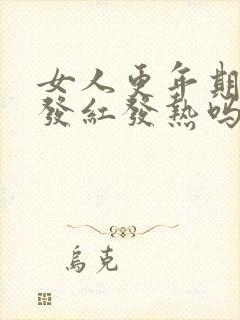 女人更年期
發紅發熱嗎
烏克